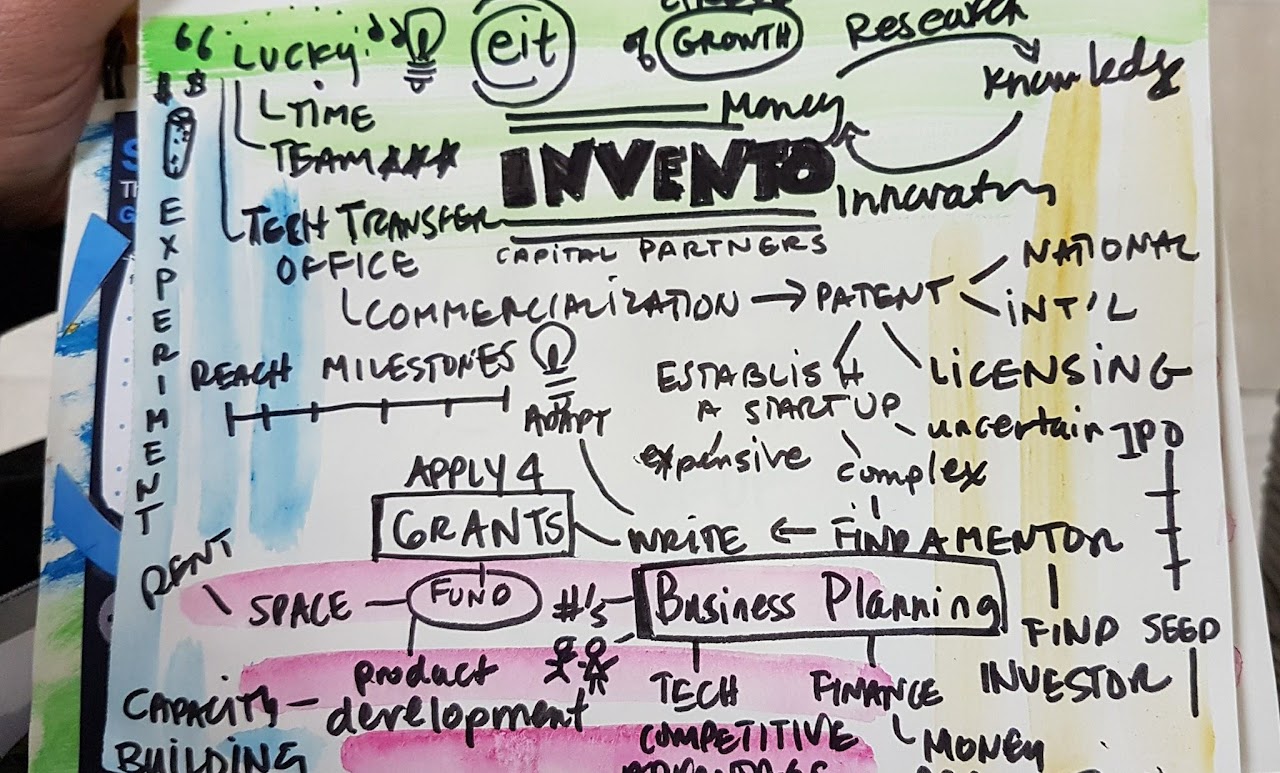 “ LUCKY! ”
eit
of GROWTH
Research
Knowledge
Money
Innovation
$ $
TIME
TEAM ★★★
TECH TRANSFER
OFFICE
INVENTO
CAPITAL PARTNERS
EXPERIMENT
COMMERCIALIZATION → PATENT
NATIONAL
INT'L
LICENSING
ESTABLISH
A STARTUP
expensive
complex
uncertain
IPO
REACH MILESTONES
ADAPT
APPLY 4
GRANTS
WRITE ← FIND A MENTOR
RENT
SPACE
FUND
#'s
Business Planning
FIND SEED
INVESTOR
product
development
CAPACITY
BUILDING
TECH
COMPETITIVE
FINANCE
MONEY